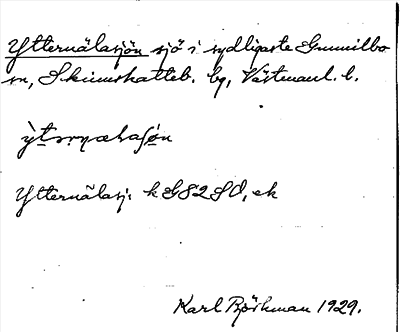 Ytternälasjön sjö i sydligaste Gunnilbo
sn, Skinnskatteb. bg, Västmanl. l.
Ytternälasj: k G82SO, ek
Karl Björkman 1929.